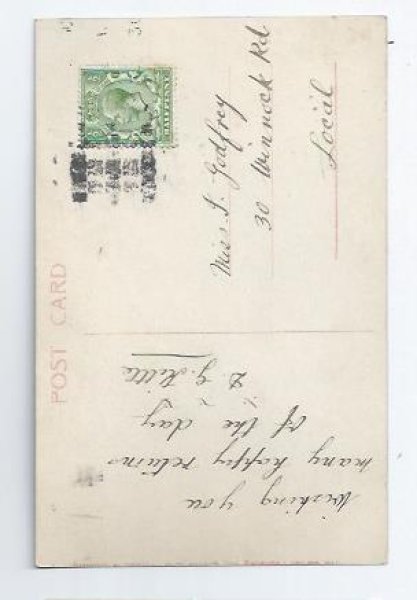 POST CARD
Wishing you
many happy returns
of the day
Miss S. Godfrey
30 Winnock Rd
Local